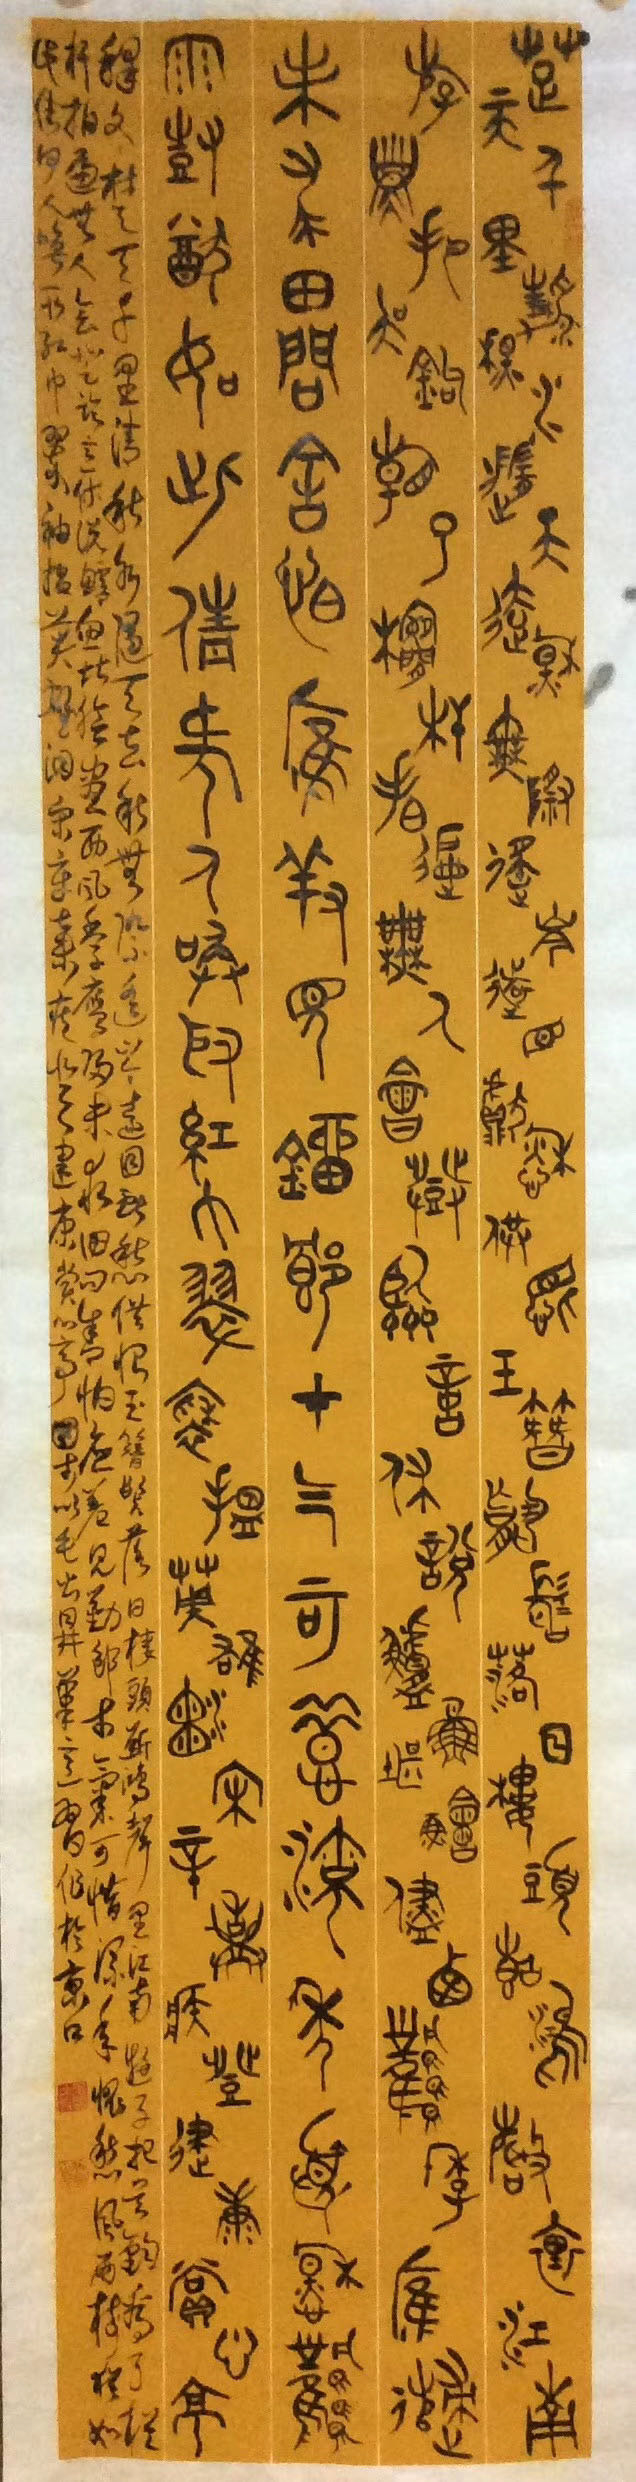 楚天千里清秋水隨天去秋無際遙岑遠目獻愁供恨玉簪螺髻落日樓頭斷鴻聲裏江南
游子把吳鉤看了欄杆拍遍無人會登臨意休說鱸魚堪膾儘西風季鷹歸
未求田問舍怕應羞見劉郎才氣可惜流年憂愁風
雨樹猶如此倩何人喚取紅巾翠袖搵英雄淚宋辛棄疾登建康賞心亭
釋文楚天千里清秋水隨天去秋無際遙岑遠目獻愁供恨玉簪螺髻落日樓頭斷鴻聲里江南遊子把吳鉤看了欄
杆拍遍無人會登臨意休說鱸魚堪膾盡西風季鷹歸未求田問舍怕應羞見劉郎才氣可惜流年憂愁風雨樹猶如
此倩何人喚取紅巾翠袖搵英雄淚宋辛棄疾水龍登建康賞心亭於京口